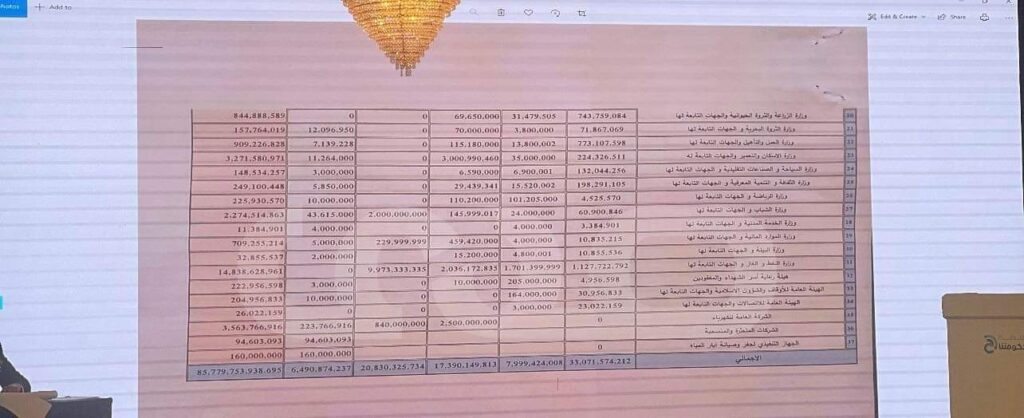 Photos
Add to
Edit & Create
Share
20 وزارة الزراعة والثروة الحيوانية والجهات التابعة لها 743.759.084 31.479.505 69.650.000 0 0 844,888,589
21 وزارة الثروة البحرية و الجهات التابعة لها 71.867.069 3,800,000 70,000,000 0 12.096.950 157,764,019
22 وزارة العمل والتأهيل والجهات التابعة لها 773,107,598 13,800,002 115.180.000 0 7.139.228 909,226,828
23 وزارة الاسكان والتعمير والجهات التابعة له 224,326,511 35,000,000 3,000,990,460 0 11,264,000 3,271,580,971
24 وزارة السياحة و الصناعات التقليدية و الجهات التابعة لها 132,044,256 6,900,001 6,590,000 0 3,000,000 148,534,257
25 وزارة الثقافة و التنمية المعرفية و الجهات التابعة لها 198,291,105 15,520,002 29,439,341 0 5,850,000 249,100,448
26 وزارة الرياضة و الجهات التابعة لها 4,525,570 101,205,000 110,200,000 0 10,000,000 225,930,570
27 وزارة الشباب و الجهات التابعة لها 60,900,846 24,000,000 145,999,017 2,000,000,000 43,615,000 2,274,514,863
28 وزارة الخدمة المدنية و الجهات التابعة لها 3,384,901 4,000,000 0 0 4,000,000 11,384,901
29 وزارة الموارد المائية و الجهات التابعة لها 10,835,215 4,000,000 459,420,000 229,999,999 5,000,000 709,255,214
30 وزارة البيئة و الجهات التابعة لها 10,855,536 4,800,001 15,200,000 2,000,000 32,855,537
31 وزارة النفط و الغاز و الجهات التابعة لها 1,127,722,792 1,701,399,999 2,036,172,835 9,973,333,335 0 14,838,628,961
32 هيئة رعاية أسر الشهداء والمفقودين 4,956,598 205,000,000 10,000,000 0 3,000,000 222,956,598
33 الهيئة العامة للأوقاف والشؤون الاسلامية والجهات التابعة لها 30,956,833 164,000,000 0 0 10,000,000 204,956,833
34 الهيئة العامة للاتصالات والجهات التابعة لها 23,022,159 3,000,000 0 0 0 26,022,159
35 الشركة العامة للكهرباء 0 2,500,000,000 840,000,000 223,766,916 3,563,766,916
36 الشركات المتعثرة والمنسحبة 94,603,093 94,603,093
37 الجهاز التنفيذي لحفر وصيانة آبار المياه 0 160,000,000 160,000,000
الاجمالي 33,071,574,212 7,999,424,008 17,390,149,813 20,830,325,734 6,490,874,237 85,779,753,938.695